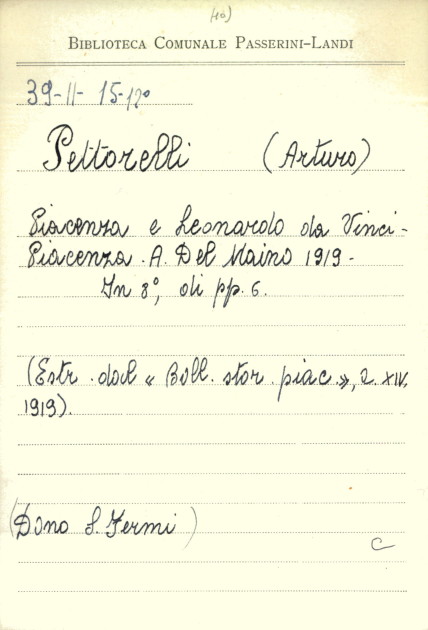 (10)
BIBLIOTECA COMUNALE PASSERINI-LANDI
39-II- 15-12º
Pettorelli (Arturo)
Piacenza e Leonardo da Vinci-
Piacenza. A. Del Maino 1919-
In 8º, di pp. 6.
(Estr. dal « Boll. stor. piac. », a. XIV.
1919).
(Dono S. Fermi)
C